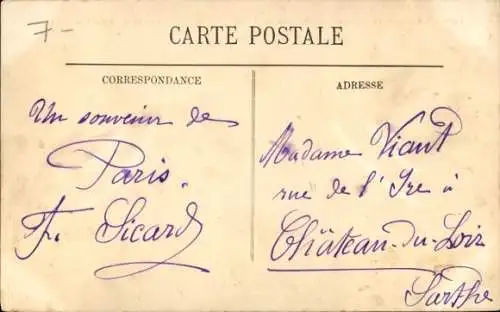 7-
CARTE POSTALE
CORRESPONDANCE
Un souvenir de
Paris.
Fr. Sicard
ADRESSE
Madame Viant
rue de l'Ire à
Château-du-Loir
Sarthe